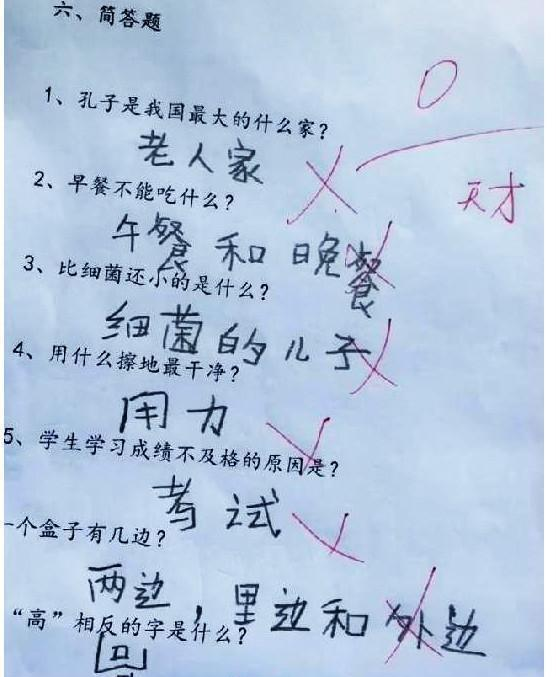 六、简答题
0
1、孔子是我国最大的什么家？
老人家
天才
2、早餐不能吃什么？
午餐和晚餐
3、比细菌还小的是什么？
细菌的儿子
4、用什么擦地最干净？
用力
5、学生学习成绩不及格的原因是？
考试
一个盒子有几边？
两边，里边和外边
“高”相反的字是什么？